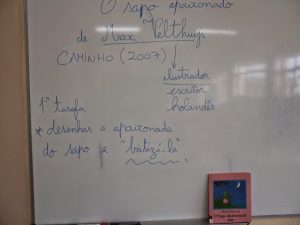 O sapo apaixonado
de Max Velthuijs
CAMINHO (2007)
ilustrador
escritor
holandês
1ª tarefa
* desenhar a apaixonada
do sapo e "batizá-la"
O Sapo Apaixonado